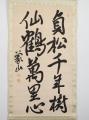 貞松千年樹
仙鶴萬里心